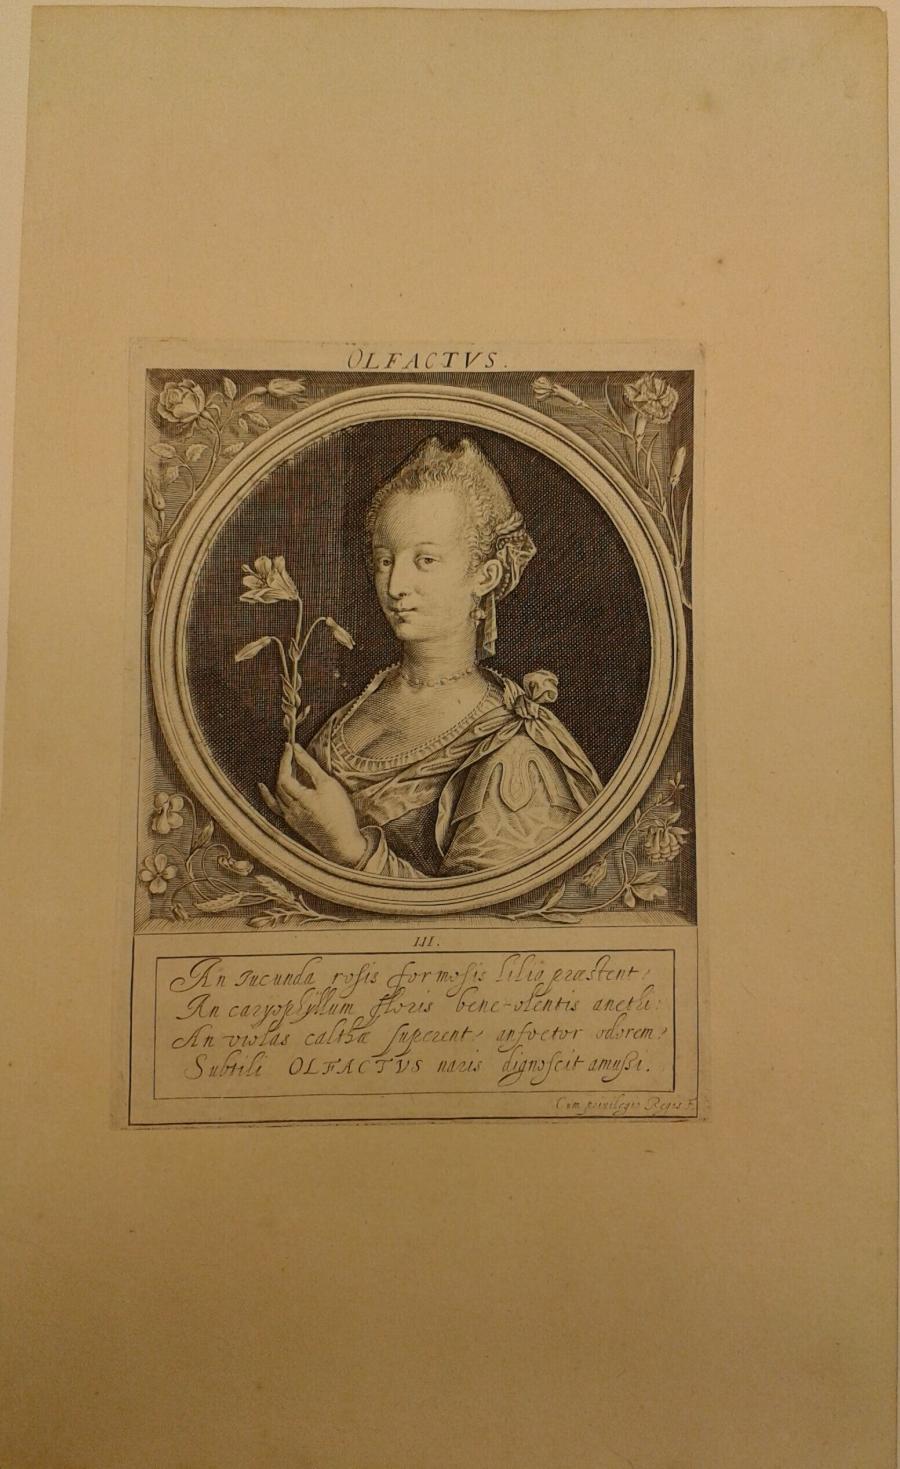 OLFACTVS.
III.
An Iucunda rosis formosis lilia præstent?
An caryophyllum floris bene-olentis anethi:
An violas calthæ superent? an foetor odorem?
Subtili OLFACTVS naris dignoscit amussi.
Cum privilegio Regis F.